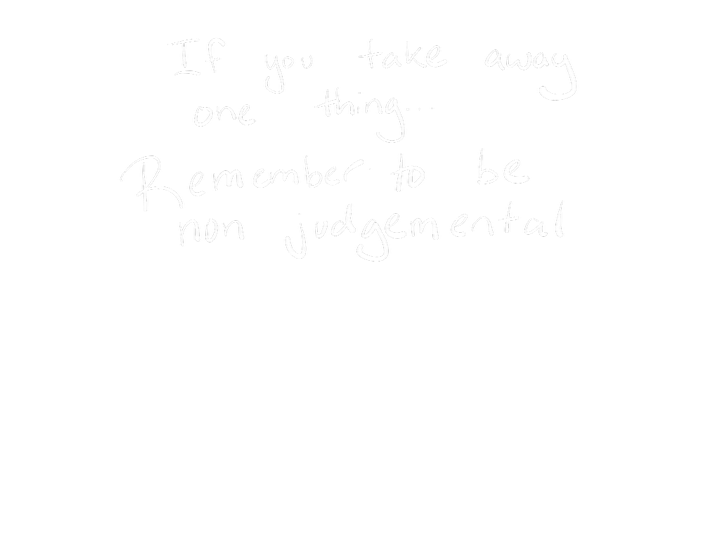 If you take away
one thing...
Remember to be
non judgemental